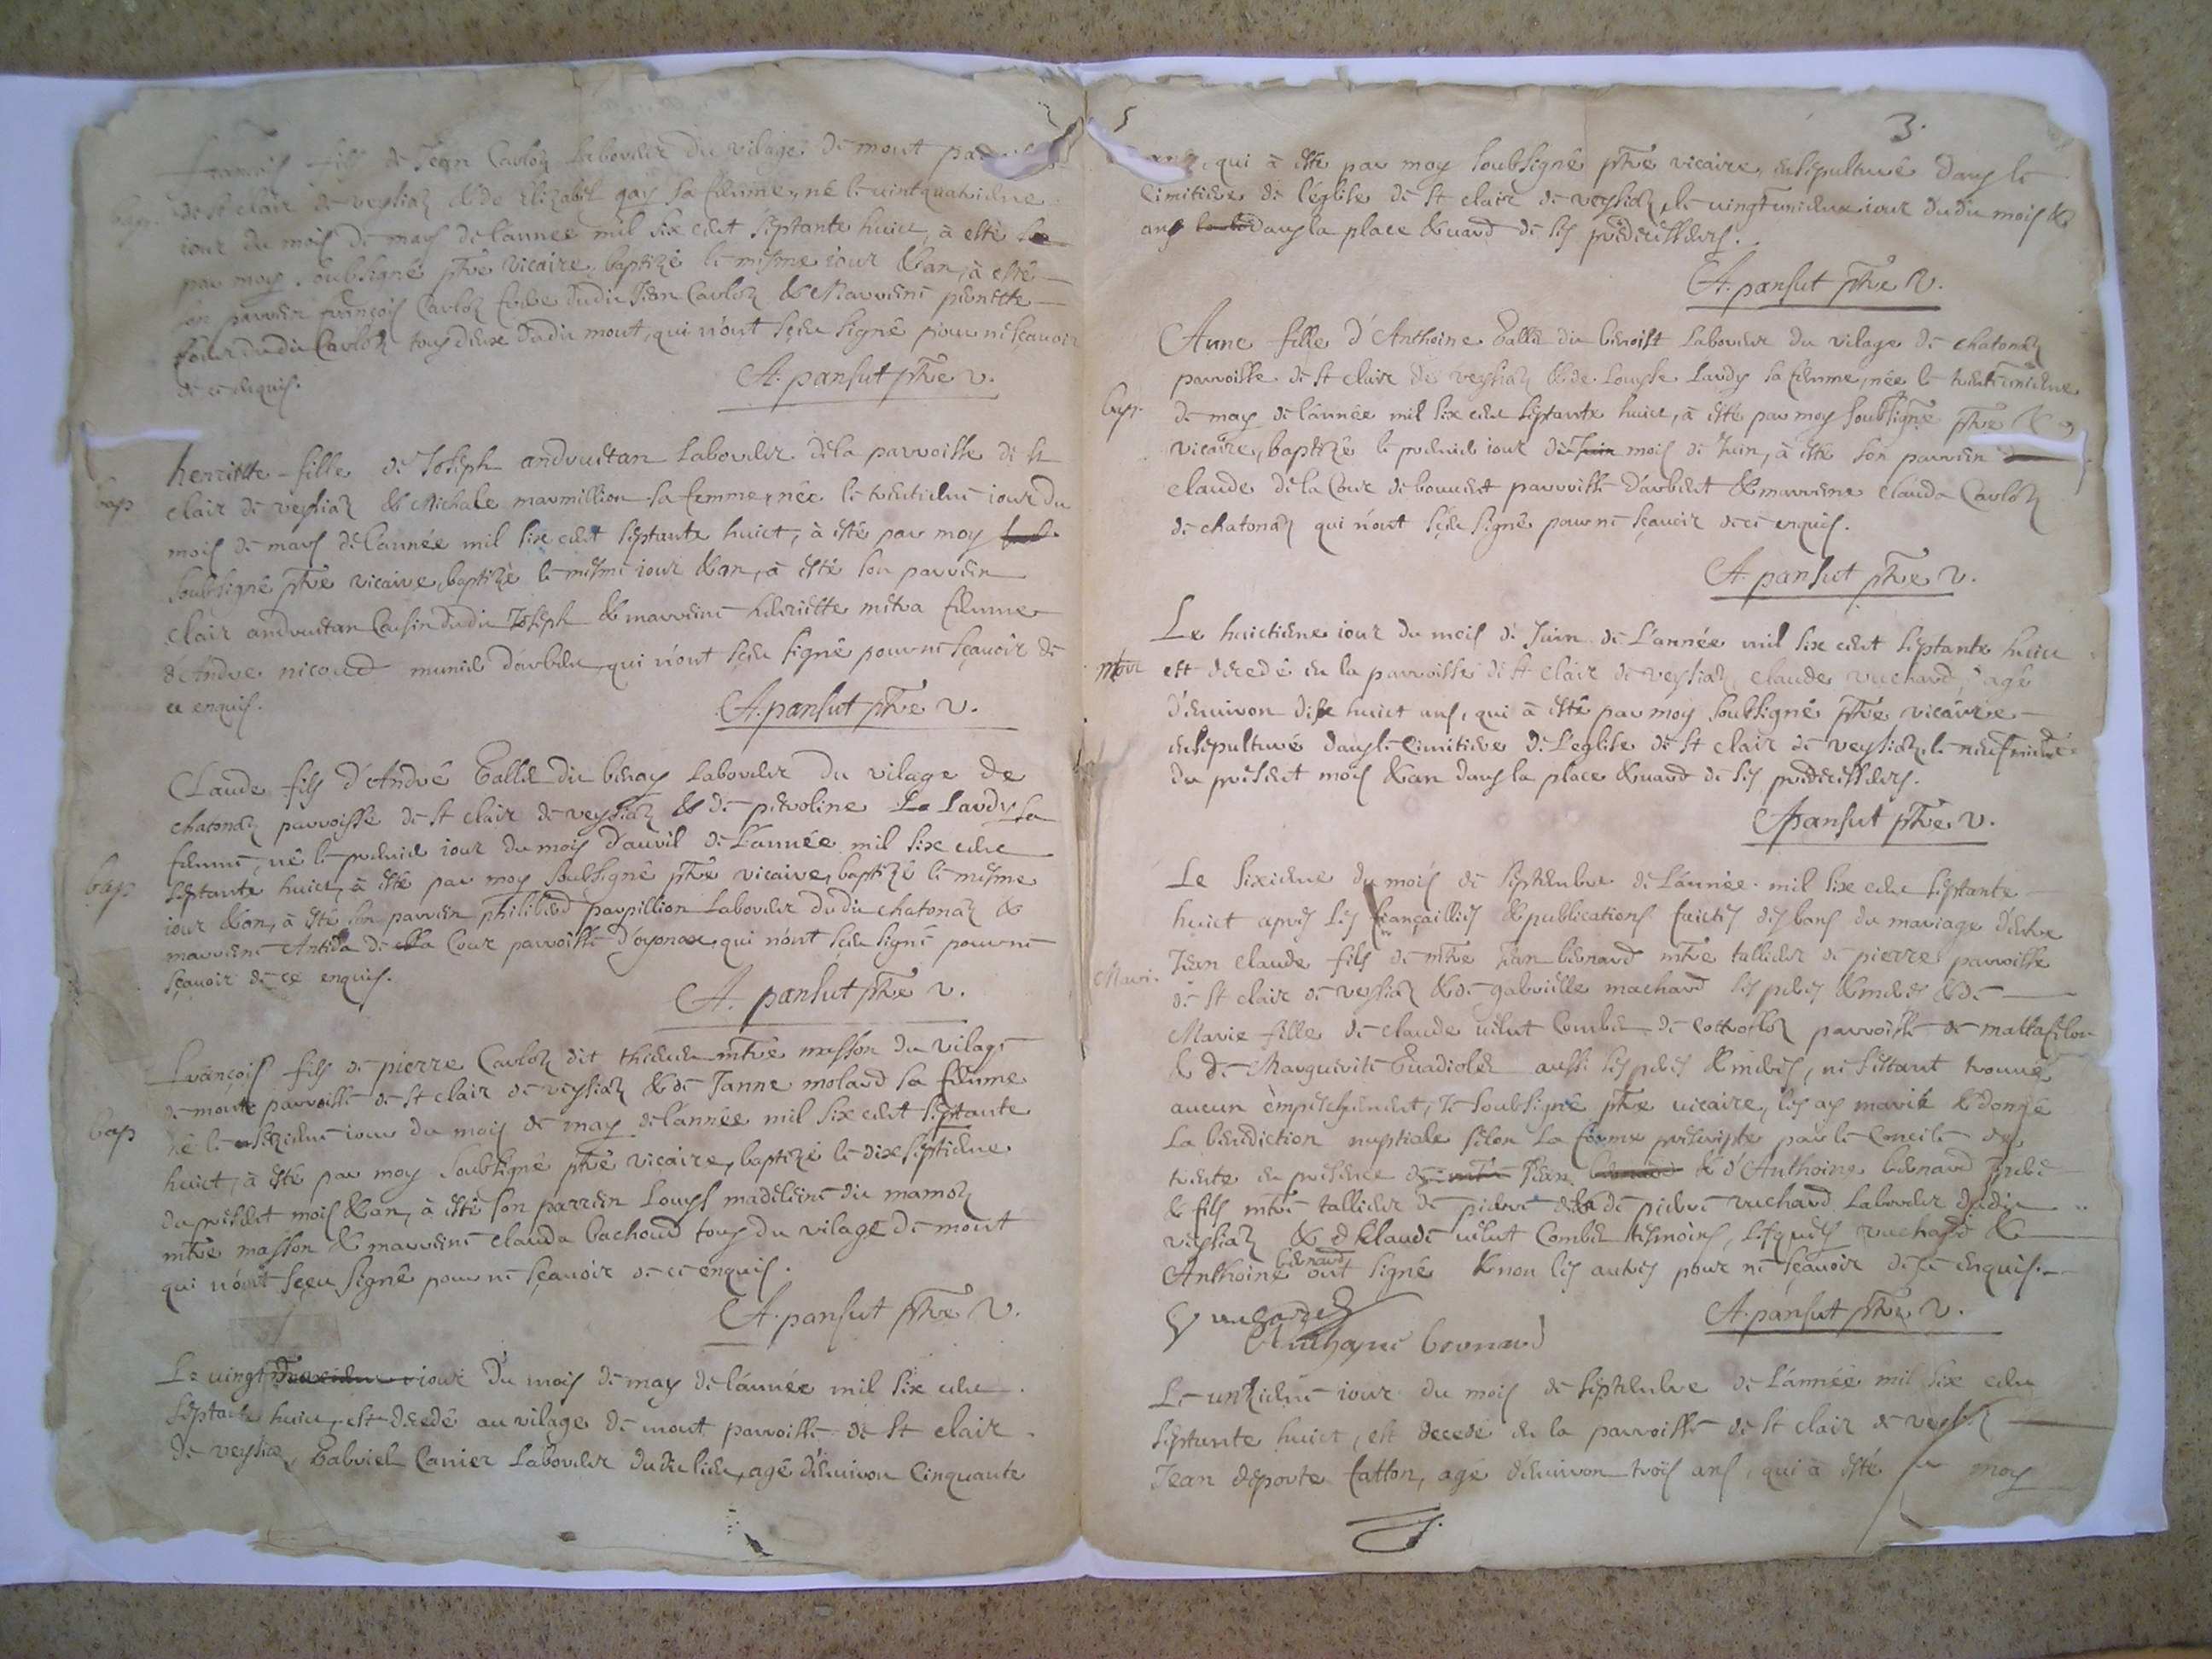 françois fils de Jean Carloz laboureur du vilage de mont
bap. de St clair de veysiaz & de Elizabet gay sa femme, né le vint quatrieme
iour du mois de mars de l'année mil six cent septante huict, à esté
par moy soubsigné ptre vicaire, baptizé le mesme iour & an, à esté
son parrein françois Carloz frere dudit Jean Carloz & Marreine pernette
soeur dudit Carloz tous deux dudit mont, qui n'ont sceu signé pour ne sçavoir
de ce enquis.
A. pansut ptre v.
henriette fille de Joseph andruetan laboureur de la parroisse de St
bap clair de veysiaz & Michale marmillion sa femme, née le trentieme iour du
mois de mars de l'année mil six cent septante huict, à esté par moy
soubsigné ptre vicaire, baptizé le mesme iour & an, à esté son parrein
clair andruetan Cousin dudit Joseph & marreine henriette metra femme
d'Andre nicoud munier d'arbent, qui n'ont sceu signé pour ne sçavoir de
ce enquis.
A. pansut ptre v.
Claude fils d'André Tallet dit benoy laboureur du vilage de
chatonaz parroisse de St clair de veysiaz & de pieroline La Lardy sa
femme, né le premier iour du mois d'avril de L'année mil six cent
bap septante huict, à esté par moy soubsigné ptre vicaire, baptizé le mesme
iour & an, à esté son parrein philiberd parpillion laboureur dudit chatonaz &
marreine Antida de la Cour parroisse d'oyonax, qui n'ont sceu signé pour ne
sçavoir de ce enquis.
A. pansut ptre v.
François fils de pierre Carloz dit thieuen mtre masson du vilage
de mont parroisse de St clair de veysiaz & de Janne molard sa femme
bap né le sezieme iour du mois de may de l'année mil six cent septante
huict, à esté par moy soubsigné ptre vicaire, baptizé le dix septieme
du present mois & an, à esté son parrein Louys madeleine dit mamoz
mtre masson & marreine clauda bachoud tous du vilage de mont
qui n'ont sçeu signé pour ne sçavoir de ce enquis.
A. pansut ptre v.
Le vingt iour du mois de may de l'année mil six cent
septante huict, est decedé au vilage de mont parroisse de St clair
de veysiaz, Gabriel Canier laboureur dudit lieu, agé d'environ Cinquante
3.
ans, qui à esté par moy soubsigné ptre vicaire, ensepulturé dans le
Cimitiere de l'église de St clair de veysiaz, le vingt unieme iour dudit mois &
an dans la place & uard de ses predecesseurs.
A. pansut ptre v.
Anne fille d'Anthoine Tallet dit benoist laboureur du vilage de chatonaz
parroisse de St clair de veysiaz & de Louyse Lardy sa femme, née le trente unieme
bap. de may de l'année mil six cent septante huict, à esté par moy soubsigné ptre &
vicaire, baptizé le premier iour de Juin mois de Juin, à esté son parrein
claude de la Cour de bouuent parroisse d'arbent & marreine clauda Carloz
de chatonaz qui n'ont sçeu signé pour ne sçavoir de ce enquis.
A. pansut ptre v.
Le huictieme iour du mois de Juin de L'année mil six cent septante huict
mort est decedé en la parroisse de St clair de veysiaz, claude vuchard, agé
d'environ dixe huict ans, qui à esté par moy soubsigné ptre vicaire
ensepulturé dans le Cimitiere de L'eglise de St clair de veysiaz, le neufvieme
du present mois & an dans la place & uard de ses predecesseurs.
A pansut ptre v.
Le sixieme du mois de septembre de L'année mil six cent septante
huict apres les fiançaillies & publications faictes des bans du mariage d'entre
Jean claude fils de mtre Jean bernard mtre tallieur de pierre parroisse
Mari. de St clair de veysiaz & de gabrielle machard ses peres & meres & de
Marie fille de claude uilut Combet de Corroloz parroisse de mattafelon
& de Marguerite Guadiolet aussi ses peres & meres, ne s'estant trouué
aucun empeschement, Je soubsigné ptre vicaire, les ay marié & donné
La benediction nuptiale selon la forme prescripte par le Concile de
trente en presence de Jean & d'Anthoine bernard pere
& fils mtre tallieur de pierre & de pierre vuchard Laboureur dudit
veysiaz & de Klaude uilut Combet tesmoins, lesquels vuchard &
Anthoine bernard ont signé & non les autres pour ne sçavoir de ce enquis.
vuchard
Anthoyne bernard
A. pansut ptre v.
Le unzieme iour du mois de septembre de L'année mil six cent
septante huict, est decedé en la parroisse de St clair de veysiaz
Jean deporte Catton, agé d'environ trois ans, qui à esté par moy